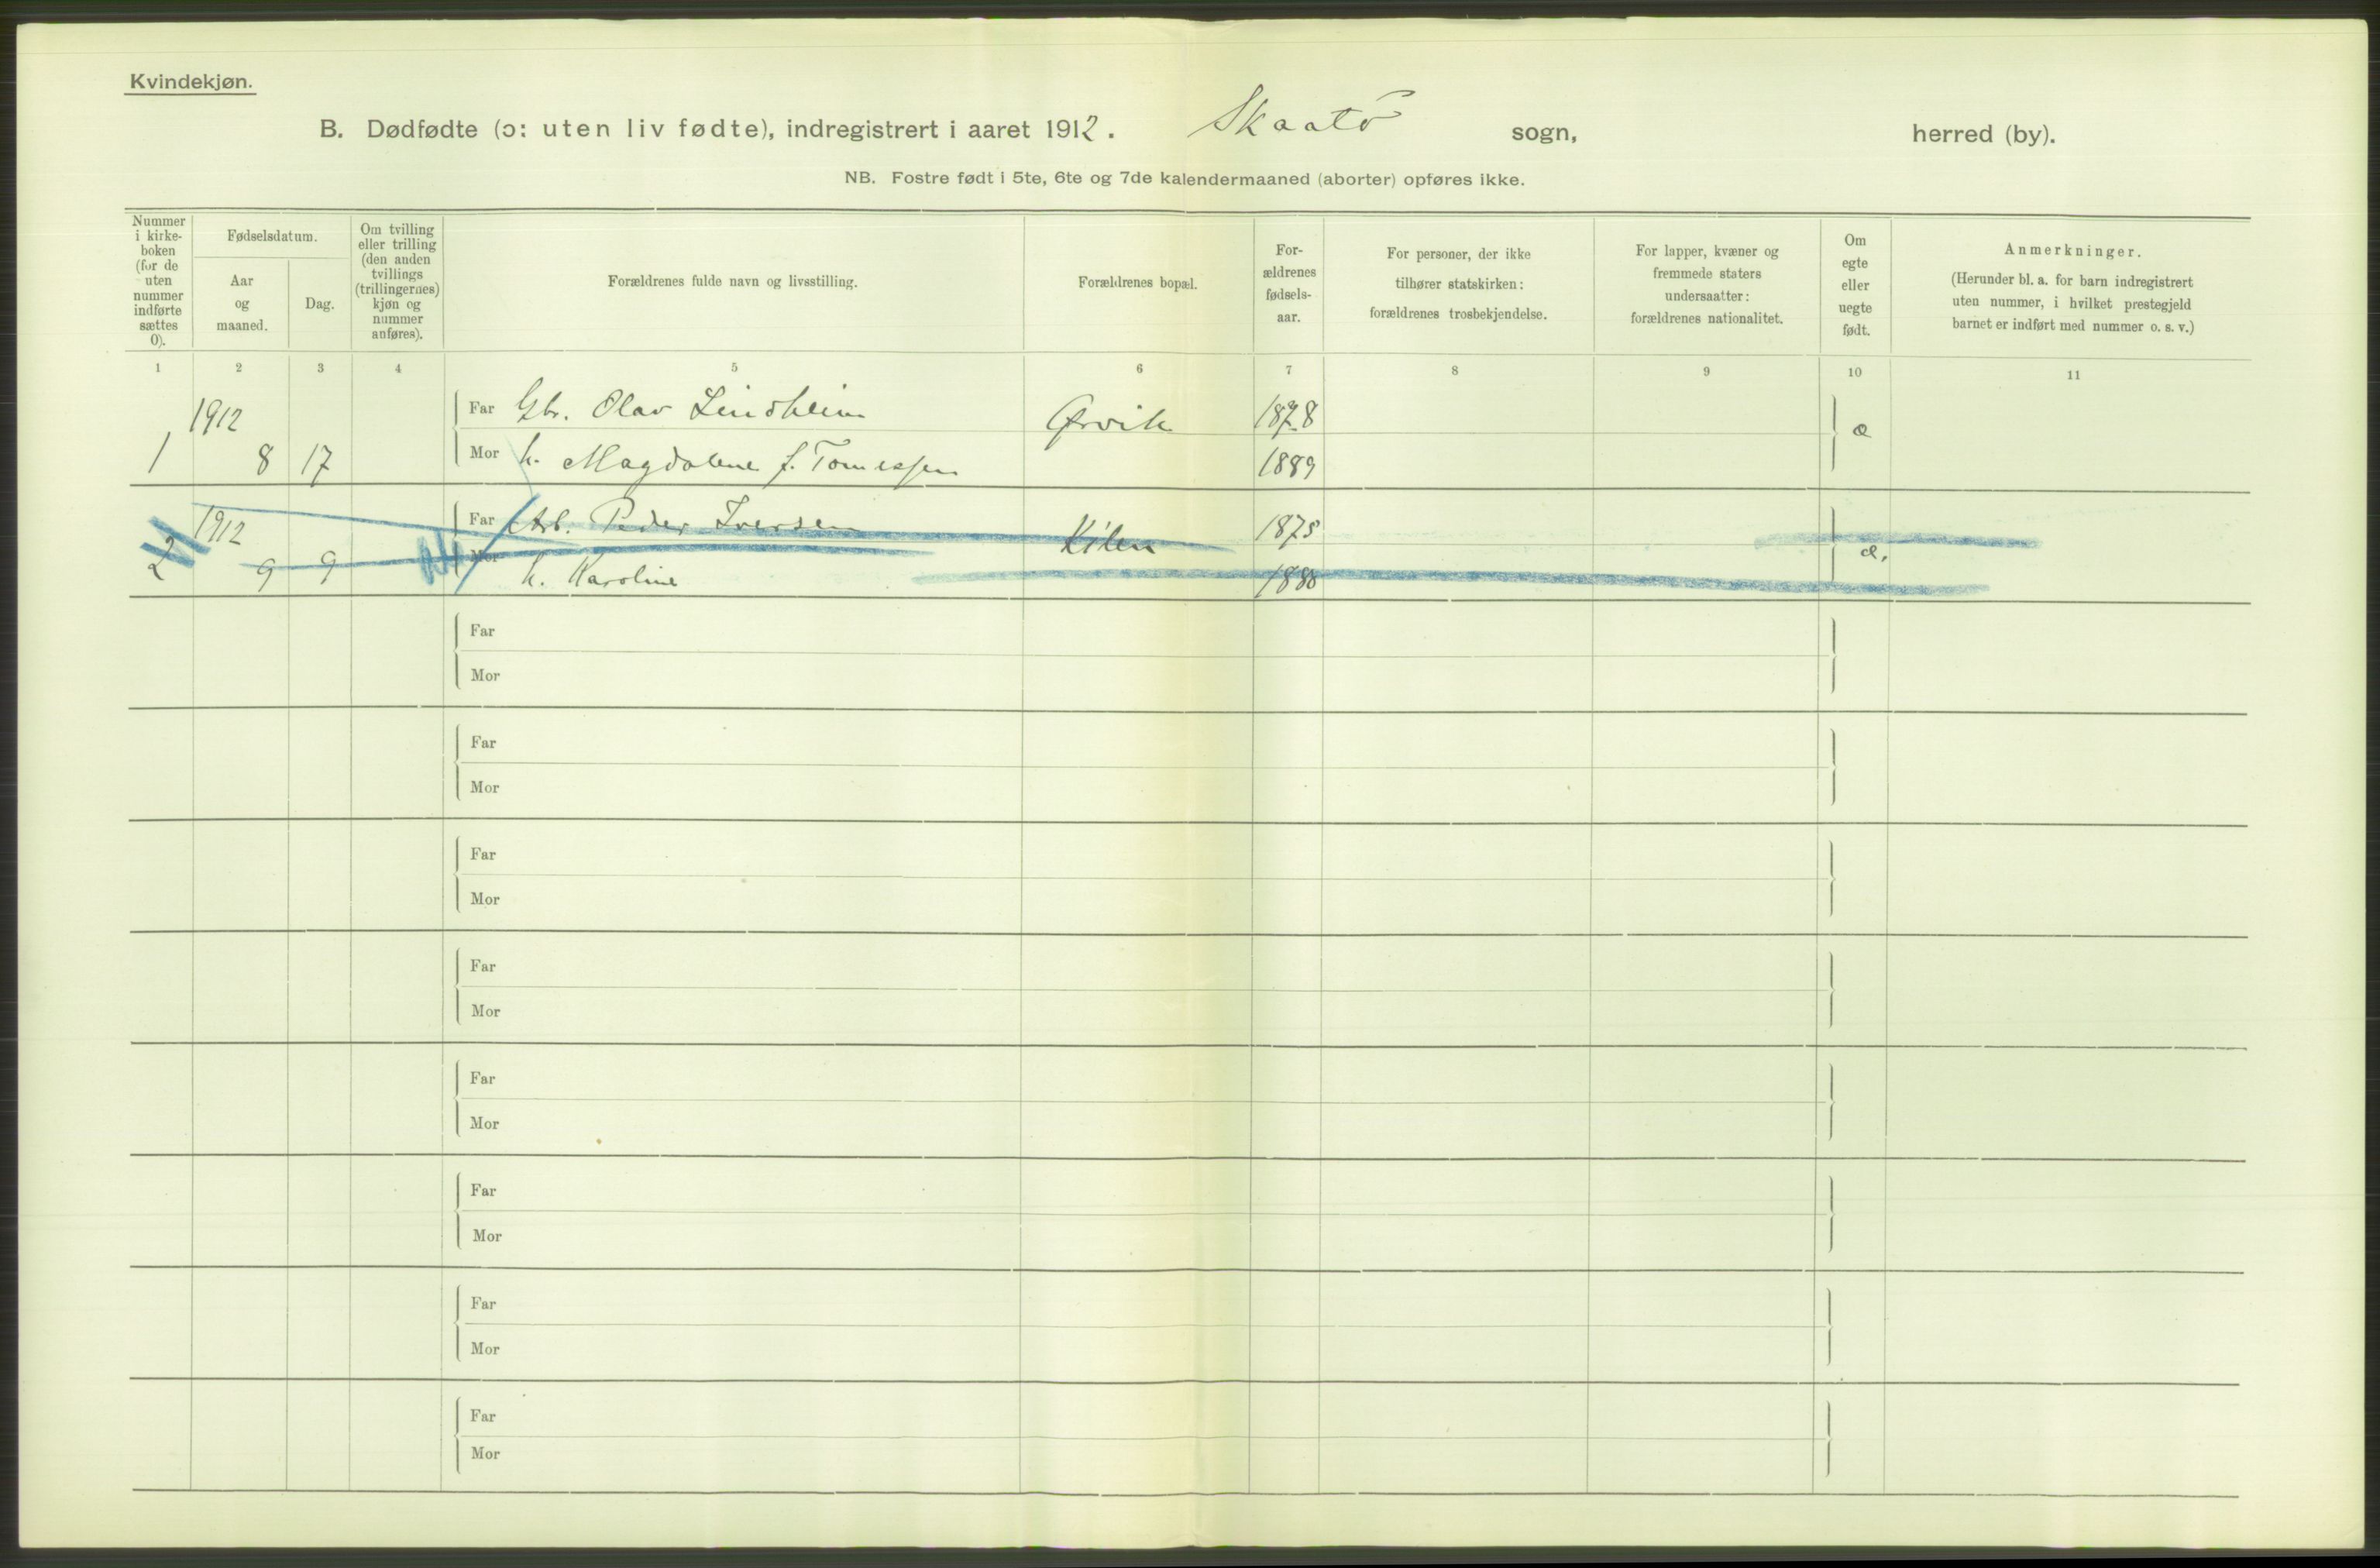 Kvindekjøn.
B. Dødfødte (ɔ: uten liv fødte), indregistrert i aaret 1912. Skaatö sogn, herred (by).
NB. Fostre født i 5te, 6te og 7de kalendermaaned (aborter) opføres ikke.
Nummer i kirke-boken (for de uten nummer indførte sættes 0).
Fødselsdatum.
Aar og maaned.
Dag.
Om tvilling eller trilling (den anden tvillings (trillingernes) kjøn og nummer anføres).
Forældrenes fulde navn og livsstilling.
Forældrenes bopæl.
For-ældrenes fødsels-aar.
For personer, der ikke tilhører statskirken: forældrenes trosbekjendelse.
For lapper, kvæner og fremmede staters undersaatter: forældrenes nationalitet.
Om egte eller uegte født.
Anmerkninger.
(Herunder bl. a. for barn indregistrert uten nummer, i hvilket prestegjeld barnet er indført med nummer o. s. v.)
1 2 3 4 5 6 7 8 9 10 11
1912 Far Gbr. Olav Lindheim Ørvik 1878 æ
1 8 17 Mor h. Magdalene f. Tomessen 1889
1912 Far Arb. Peder Iversen Kilen 1875 æ.
2 9 9 Mor h. Karoline 1880
Far
Mor
Far
Mor
Far
Mor
Far
Mor
Far
Mor
Far
Mor
Far
Mor
Far
Mor